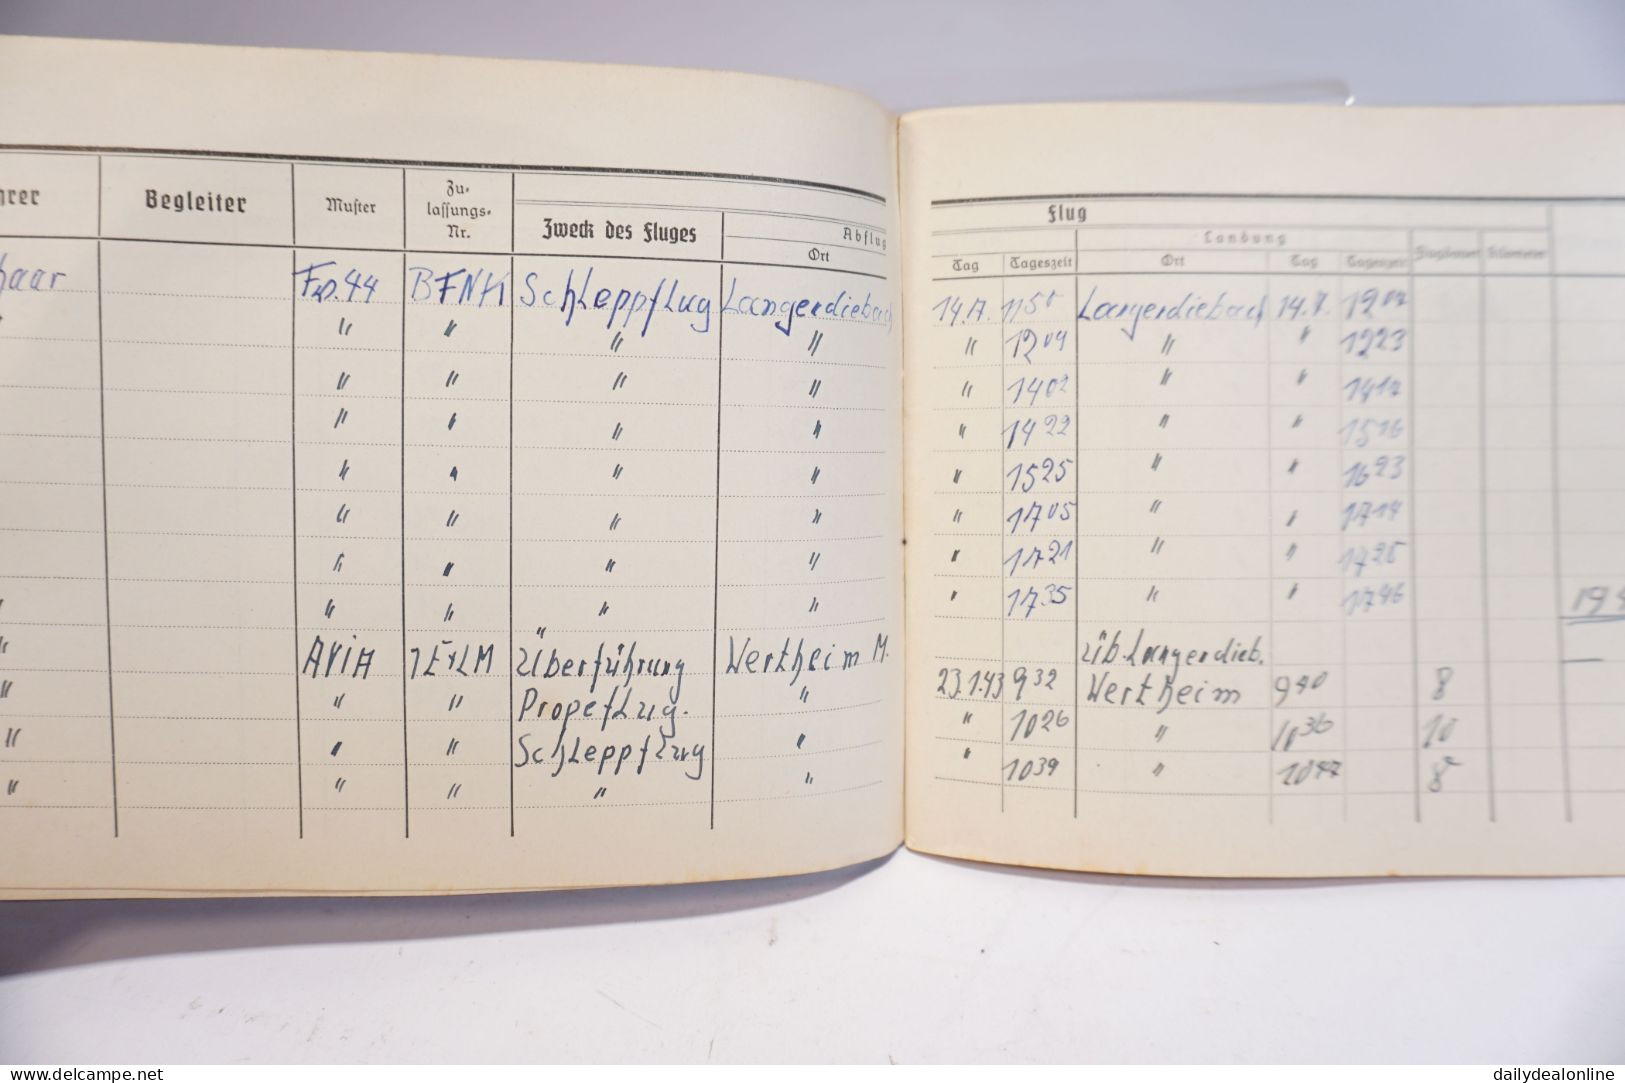 Flug
Begleiter Muster Zu-
lassungs-
Nr. Zweck des Fluges Abflug Landung Flugdauer Kilometer
Ort Tag Tageszeit Ort Tag Tageszeit
haar Fw.44 Schleppflug Langendiebach 14.7. 11 50 Langendiebach 14.7. 12 02
" " " " " 12 09 " " 12 23
" " " " " 14 02 " " 14 12
" " " " " 14 22 " "
" " " " " 15 25 " " 16 23
" " " " " 17 05 " " 17 14
" " " " " 17 21 " "
" " " " " " 17 35 " " 17 46
" AVIA Überführung Wertheim M. Üb. Langendieb.
" " " Propeflug. " 23.1.43 9 32 Wertheim 9 40 8
" " " Schleppflug " " 10 26 " 10 36 10
" " " " " " 10 39 " 10 47 8
delcampe.net dailydealonline